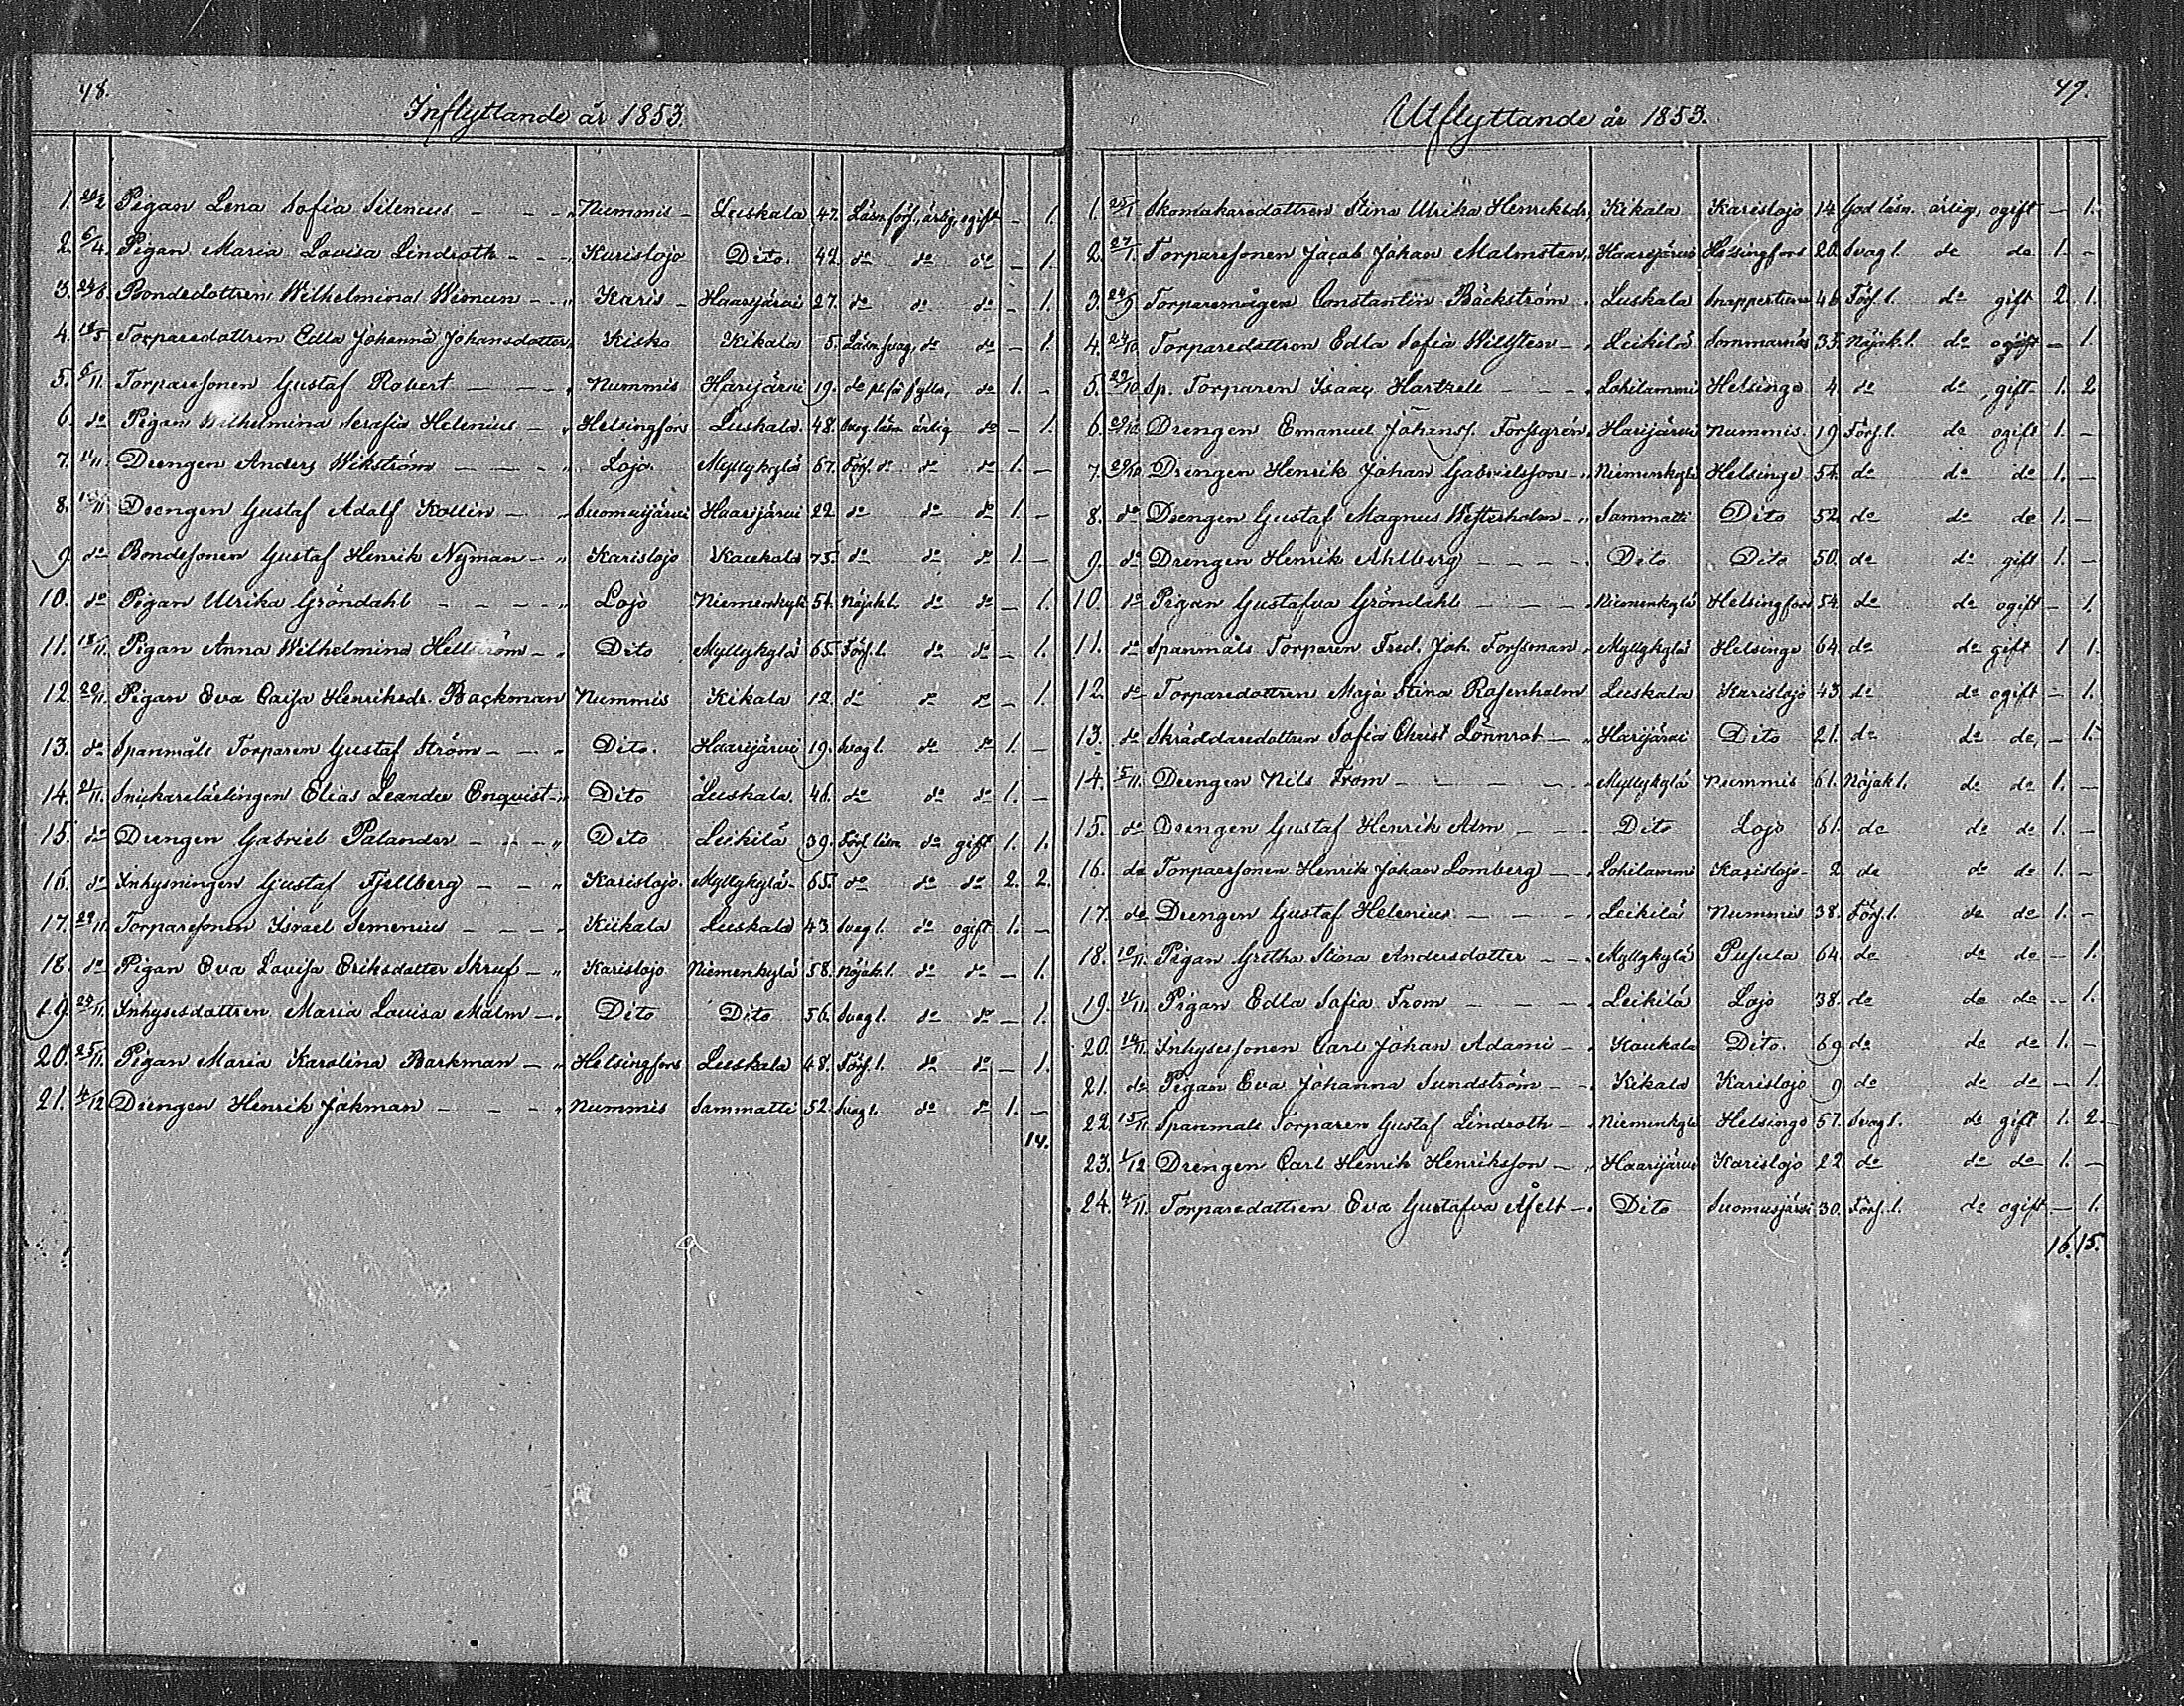 48.
Inflyttande år 1853.
1. 20/2 Pigan Lena Sofia Silenius - - - „ Nummis - Leiskala 47. Läsn. förs., ärlig, ogift - 1.
2. 6/4. Pigan Maria Lovisa Lindroth - - - „ Karislojo Dito. 42. do do do - 1.
3. Bondedottren Wilhelmina - - „ Karis - Haarijärvi 27. do do do - 1.
4. 18/5 Torparedottren Edla Johanna Johansdotter „ Kisko Kikala 5. Läsn. svag, do do - 1.
5. 6/11. Torparesonen Gustaf Robert - - - „ Nummis Harijärvi 19. do do 1. -
6. do Pigan Wilhelmina Serafia Helenius - „ Helsingfors Leiskala. 48. Svag läsn ärlig do - 1.
7. 11/11. Drengen Anders Wikström - - - „ Lojo Myllykylä 67. Förs. do do do 1. -
8. Drengen Gustaf Adolf Kollin - - „ Suomusjärvi Haarijärvi 22 do do do 1. -
9. do Bondesonen Gustaf Henrik Nyman - „ Karislojo Kaukola 75. do do do 1. -
10. do Pigan Ulrika Gröndahl - - - - „ Lojo Niemenkylä 54. Nöjakl. do do - 1.
11. 18/11. Pigan Anna Wilhelmina Hellström - „ Dito Myllykylä 65. Förs. l. do do - 1.
12. 20/11. Pigan Eva Caisa Henriksdr. Backman Nummis Kikala 12. do do do - 1.
13. do Spanmåls Torparen Gustaf Ström - - - „ Dito. Haarijärvi 19. Svag l. do do 1. -
14. 21/11. Snickarelärlingen Elias Leander Enqvist - „ Dito Leiskala. 48. do do do 1. -
15. do Drengen Gabriel Palander - - - - „ Dito Leikilä 39. Förs. läsn do gift 1. 1.
16. do Inhysningen Gustaf Fjellberg - - - „ Karislojo. Myllykylä - 65. do do do 2. 2.
17. 22/11. Torparesonen Israel Semenius - - - - „ Kiikala Leiskala 43. Svag l. do ogift 1. -
18. do Pigan Eva Lovisa Eriksdotter Skruf - „ Karislojo Niemenkylä 58. Nöjak. l. do do - 1.
19. 24/11. Inhysesdottren Maria Lovisa Malm - „ Dito Dito 56. Svag l. do do - 1.
20. 25/11. Pigan Maria Karolina Barkman - „ Helsingfors Leiskala 48. Förs. l. do do - 1.
21. 4/12 Drengen Henrik Jakman - - - - „ Nummis Sammatti 52. Svag l. do do 1. -
14.
49.
Utflyttande år 1853.
1. 25/1 Skomakaredottren Stina Ulrika Henriksdr. Kikala Karislojo 14 God läsn. ärlig, ogift - 1.
2. 27/1. Torparesonen Jacob Johan Malmsten „ Haarijärvi Helsingfors 20. Svag l. do do 1. -
3. Torparemågen Constantin Bäckström „ Leiskala Snappertuna 46. Förs. l. do gift 2. 1.
4. 24/10 Torparedottren Edla Sofia Willsten - „ Leikilä Sommarnäs 35. Nöjak. l. do ogift - 1.
5. 29/10 Sp. Torparen Isaac Hartzell - - - „ Lohilammi Helsinge 4. do do gift 1. 2
6. 29/10 Drengen Emanuel Johans. Forssgrén „ Harijärvi Nummis 19 Förs. l. do ogift 1. -
7. 29/10 Drengen Henrik Johan Gabrielsson „ Niemenkylä Helsinge 54. do do do 1. -
8. do Drengen Gustaf Magnus Westerholm - „ Sammatti Dito 52. do do do 1. -
9. do Drengen Henrik Ahlberg - - - - „ Dito Dito 50. do do gift 1. -
10. do Pigan Gustafva Gröndahl - - - „ Niemenkylä Helsingfors 54. do do ogift - 1.
11. do Spanmåls Torparen Fred. Joh. Forssman „ Myllykylä Helsinge 64. do do gift 1 1.
12. do Torparedottren Maja Stina Rosenholm Leiskala Karislojo 43. do do ogift - 1.
13. do Skräddaredottren Sofia Christ Lönnrot - „ Harijärvi Dito 21. do do do, - 1.
14. 5/11. Drengen Nils From - - - - „ Myllykylä Nummis 61. Nöjak l. do do 1. -
15. do Drengen Gustaf Henrik Alm - - - Dito Lojo 61. do do do 1. -
16. do Torparesonen Henrik Johan Lomberg - „ Lohilammi Karislojo - 2. do do do 1. -
17. do Drengen Gustaf Helenius - - - „ Leikilä Nummis 38. Förs. l. do do 1. -
18. 10/11. Pigan Gretha Stiora Andersdotter - - „ Myllykylä Pusula 64. do do do - 1.
19. 11/11. Pigan Edla Sofia From - - - - „ Leikilä Lojo 38. do do do - 1.
20. Inhysessonen Carl Johan Adami - „ Kaukola Dito. 69 do do do 1. -
21. do Pigan Eva Johanna Sundström - - „ Kikala Karislojo 9 do do do - 1.
22. 15/11. Spanmåls Torparen Gustaf Lindroth - „ Niemenkylä Helsinge 57. Svag l. do gift 1. 2.
23. 1/12 Drengen Carl Henrik Henriksson - „ Haarijärvi Karislojo 22. do do do 1. -
24. 4/11. Torparedottren Eva Gustafva - „ Dito Suomusjärvi 30. Förs. l. do ogift - 1.
16. 15.